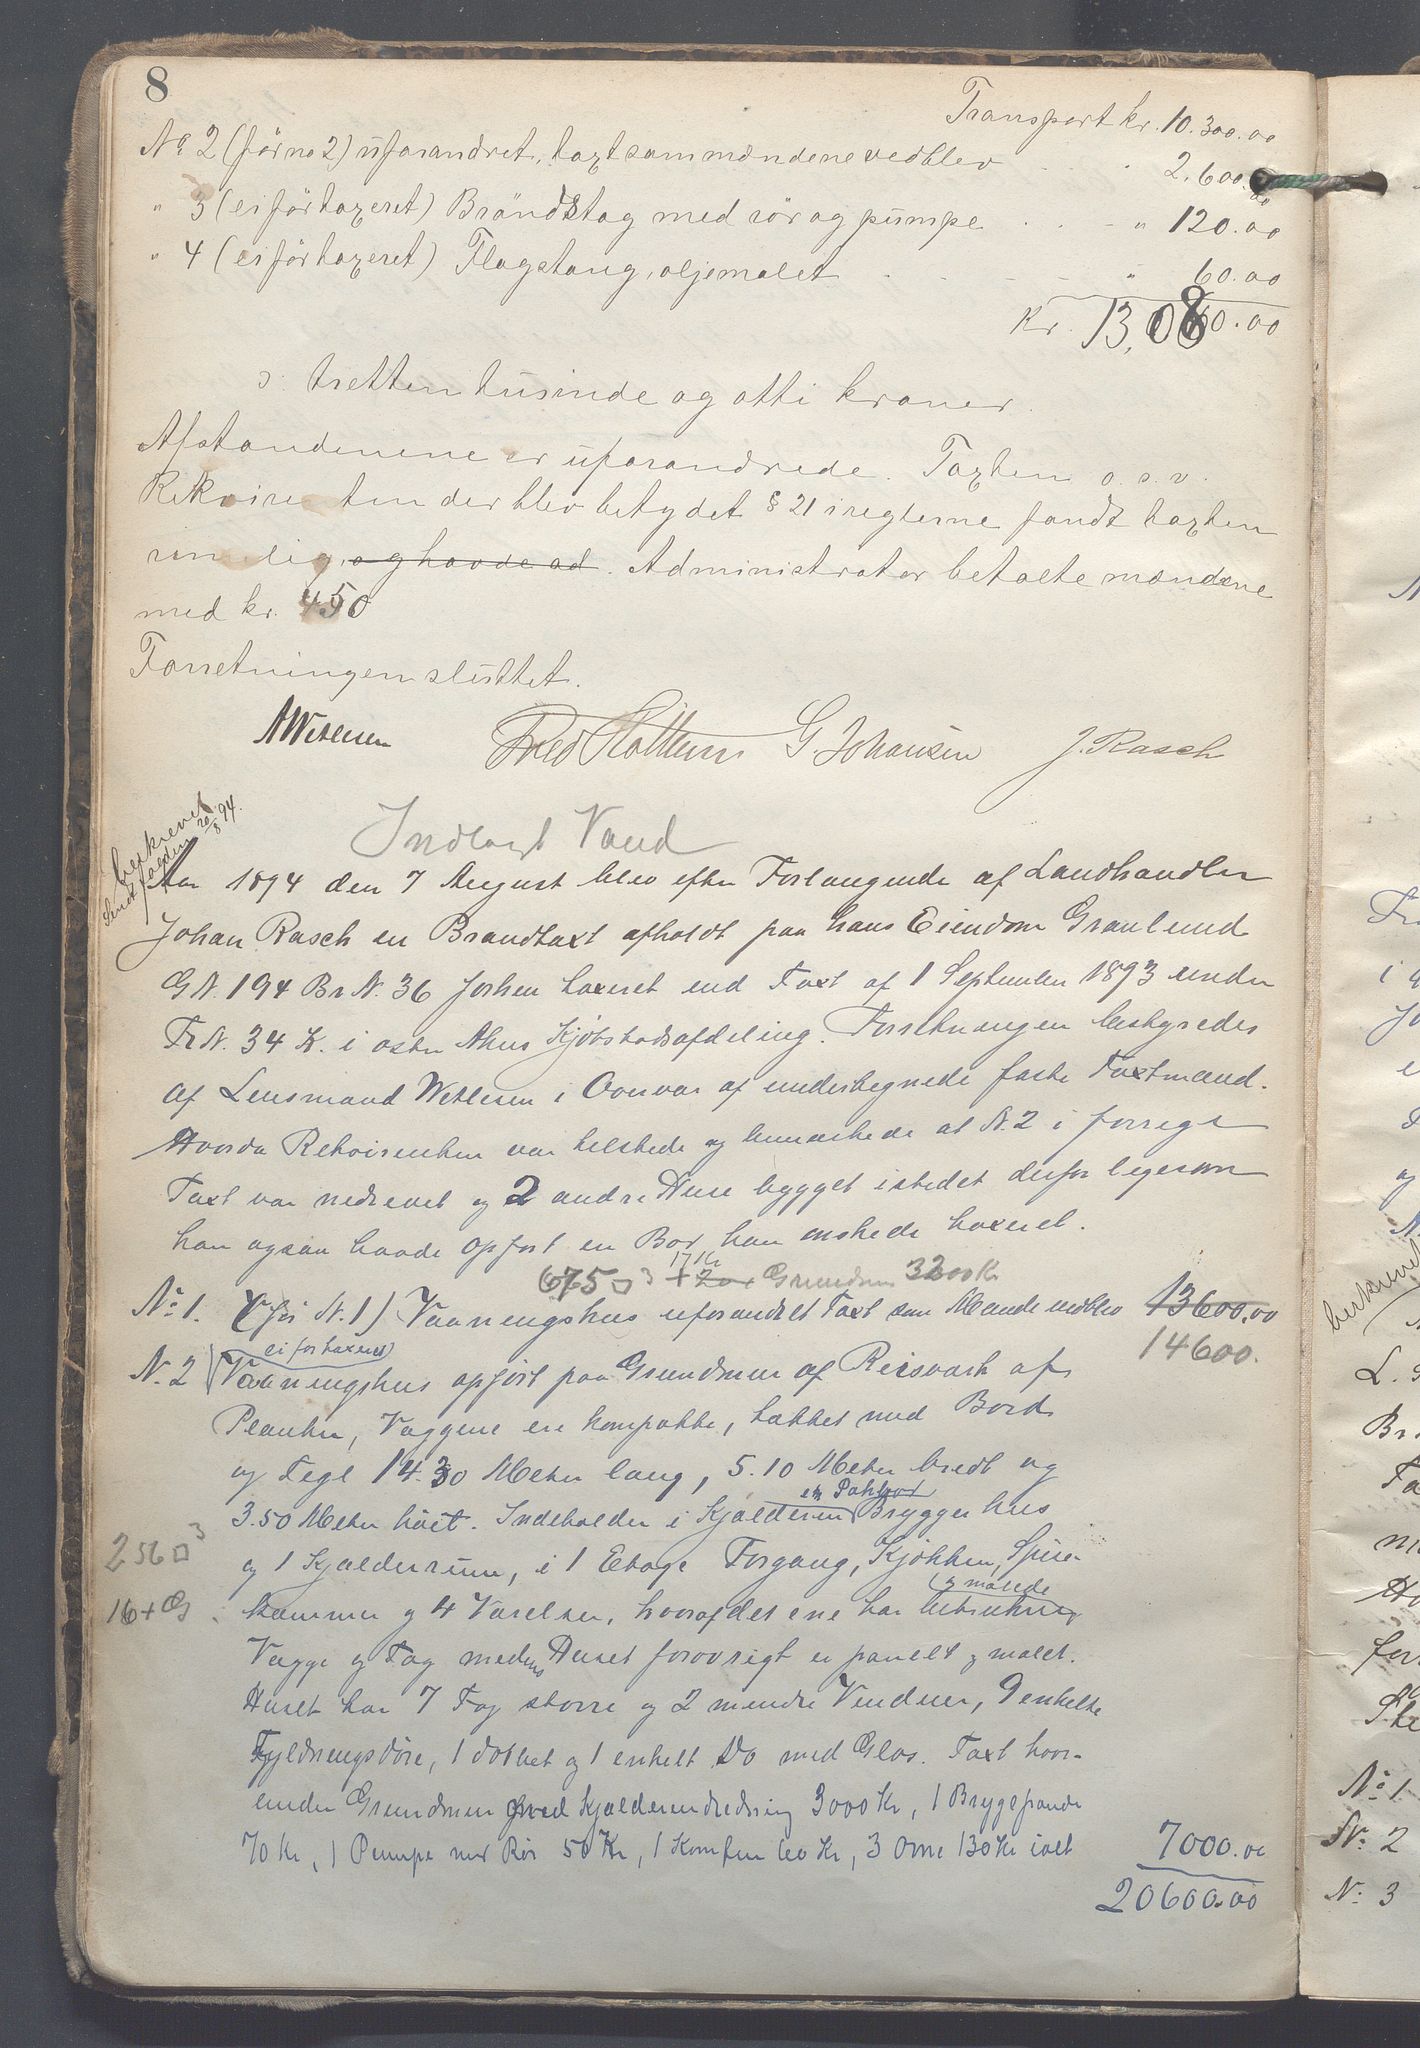 8
Transport kr. 10.300.00
No 2 (för no 2) uforandret, taxt som mændene vedblev " 2.600.00
" 3 (ei för taxeret) Bröndstag med rör og pumpe " 120.00
" 4 (ei för taxeret) Flagstang, oljemalet " 60.00
Kr. 13,080.00
ɔ: tretten tusinde og otti kroner.
Afstandenene er uforandrede. Taxten o.s.v.
Rekvirenten der blev betydet § 21 i reglerne fandt taxten
rimelig, og havde ad. Administrator betalte mændene
med kr. 450
Forretningen sluttet.
AWetlesen G. Johansen J. Rasch
Indlagt Vand
beskrevet
Sendt 20/8 94.
Aar 1894 den 7 August blev efter Forlangende af Landhandler
Johan Rasch en Brandtaxt afholdt paa hans Eiendom Granlund
GN. 194 BrN. 36 forhen taxeret ved Taxt af 1 September 1893 under
Fr N. 34 K. i Kjøbstadsafdeling. Forretningen bestyredes
af Lensmand Wetlesen i Overvær af undertegnede faste Taxtmænd.
Hvorda Rekvirenten var tilstede og bemærkede at N. 2 i forrige
Taxt var nedrevet og 2 andre Huse bygget istedet derfor ligesom
han ogsaa havde opført en Bod han ønskede taxeret.
675 □3 + 17 Kr Grundmur 3200 Kr
No 1. (før N. 1) Vaaningshus uforandret Taxt som Mænde vedblev 13600.00
14600.
ei før taxeret
N. 2 Vaaningshus opført paa Grundmur af Reisværk af
Planker, Væggene ere kompakte, tækket med Bord
og Tegl 14.30 Meter lang, 5.10 Meter bredt og
3.50 Meter høit. Indeholder i Kjælderen Bryggerhus
256 □3
og 1 Kjælderrum, i 1 Etage Forgang, Kjøkken, Spise-
16 + G
og malede
kammer og 4 Værelser, hvoraf det ene har betrukne
Vægge og Tag medens Huset forøvrigt er panelt og malet.
Huset har 7 Fag større og 2 mindre Vinduer, 9 enkelte
Fyldningsdøre, 1 dobbet og 1 enkelt Do med Glas. Taxt hvor-
under Grundmur med Kjælderindredning 3000 Kr, 1 Bryggepande
70 Kr, 1 Pumpe med Rør 50 Kr, 1 Komfur 60 Kr, 3 Ovne 130 Kr ialt 7000.00
20600.00
No 1
No 2
No 3